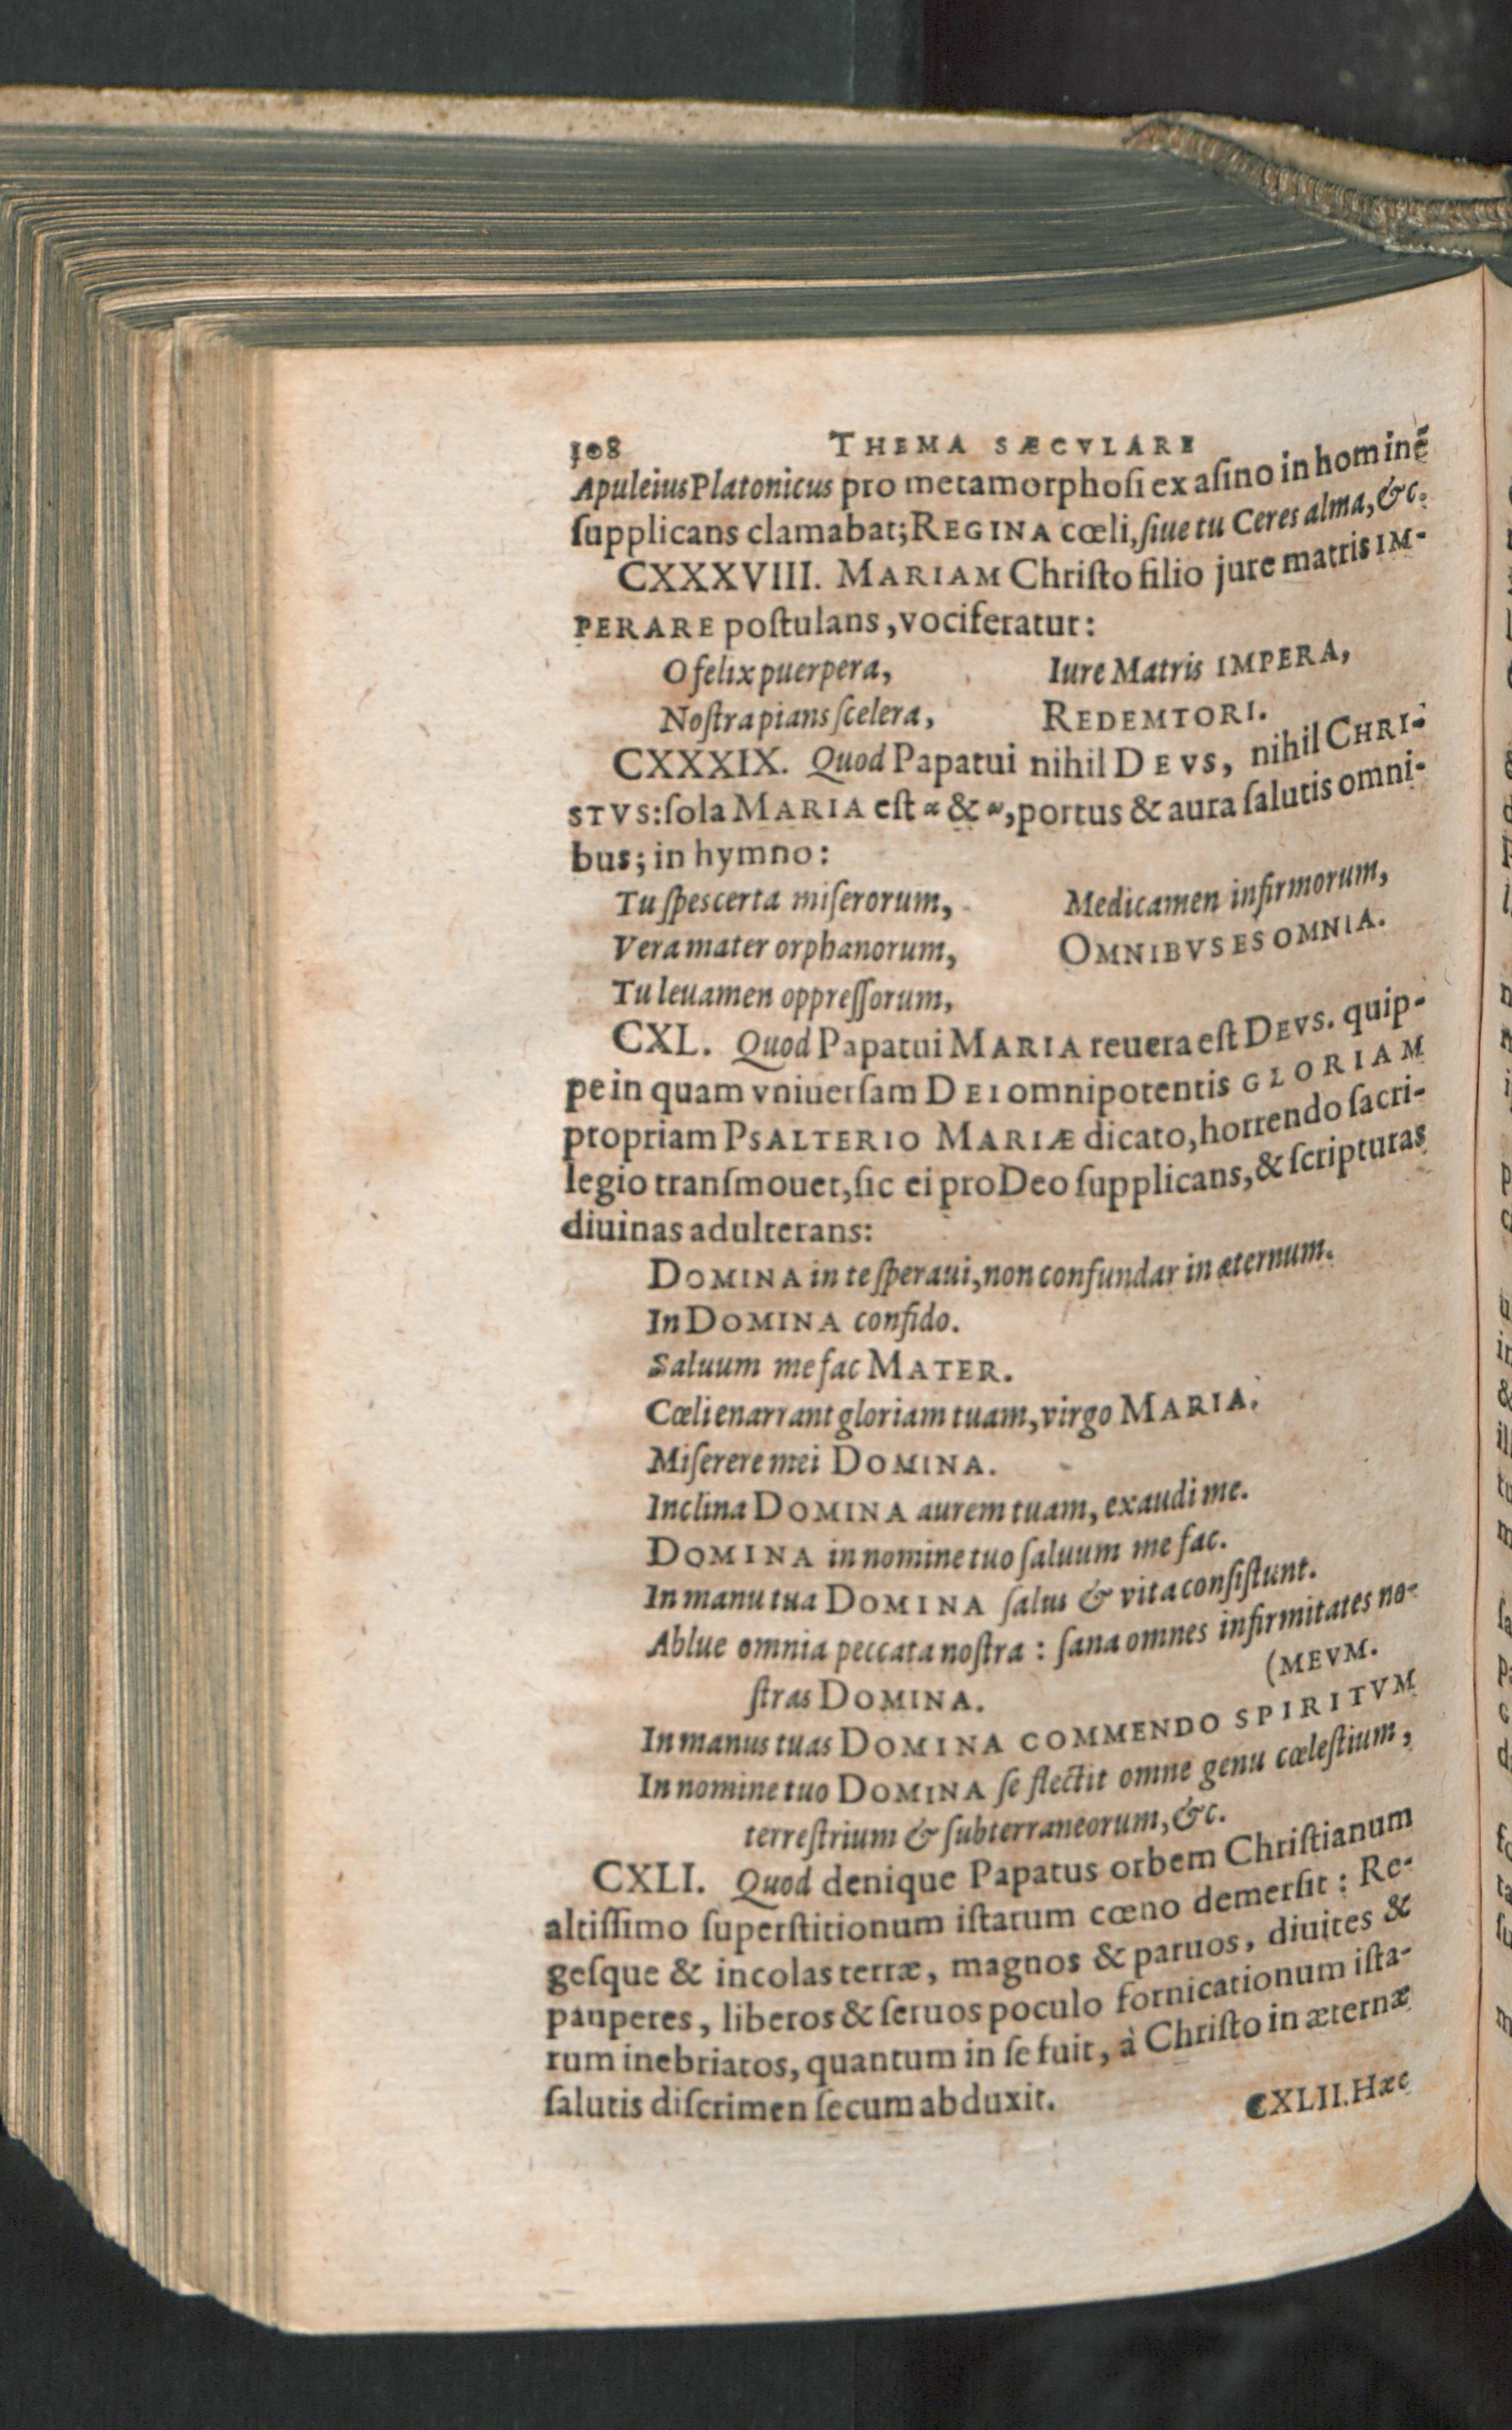 308 THEMA SÆCVLARE
Apuleius Platonicus pro metamorphosi ex asino in hominẽ
supplicans clamabat; REGINA cœli, siue tu Ceres alma, &c.
CXXXVIII. MARIAM Christo filio jure matris IM-
PERARE postulans, vociferatur:
O felix puerpera, Iure Matris IMPERA,
Nostra pians scelera, REDEMTORI.
CXXXIX. Quod Papatui nihil DEVS, nihil CHRI-
STVS: sola MARIA est α & ω, portus & aura salutis omni-
bus; in hymno:
Tu spes certa miserorum, Medicamen infirmorum,
Vera mater orphanorum, OMNIBVS ES OMNIA.
Tu leuamen oppressorum,
CXL. Quod Papatui MARIA reuera est DEVS. quip-
pe in quam vniuersam DEI omnipotentis GLORIAM
propriam PSALTERIO MARIÆ dicato, horrendo sacri-
legio transmouet, sic ei pro Deo supplicans, & scripturas
diuinas adulterans:
DOMINA in te speraui, non confundar in æternum.
In DOMINA confido.
Saluum me fac MATER.
Cœli enarrant gloriam tuam, virgo MARIA.
Miserere mei DOMINA.
Inclina DOMINA aurem tuam, exaudi me.
DOMINA in nomine tuo saluum me fac.
In manu tua DOMINA salus & vita consistunt.
Ablue omnia peccata nostra: sana omnes infirmitates no-
stras DOMINA. (MEVM.
In manus tuas DOMINA COMMENDO SPIRITVM
In nomine tuo DOMINA se flectit omne genu cœlestium,
terrestrium & subterraneorum, &c.
CXLI. Quod denique Papatus orbem Christianum
altissimo superstitionum istarum cœno demersit: Re-
gesque & incolas terræ, magnos & paruos, diuites &
pauperes, liberos & seruos poculo fornicationum ista-
rum inebriatos, quantum in se fuit, à Christo in æternæ
salutis discrimen secum abduxit.
CXLII. Hæc